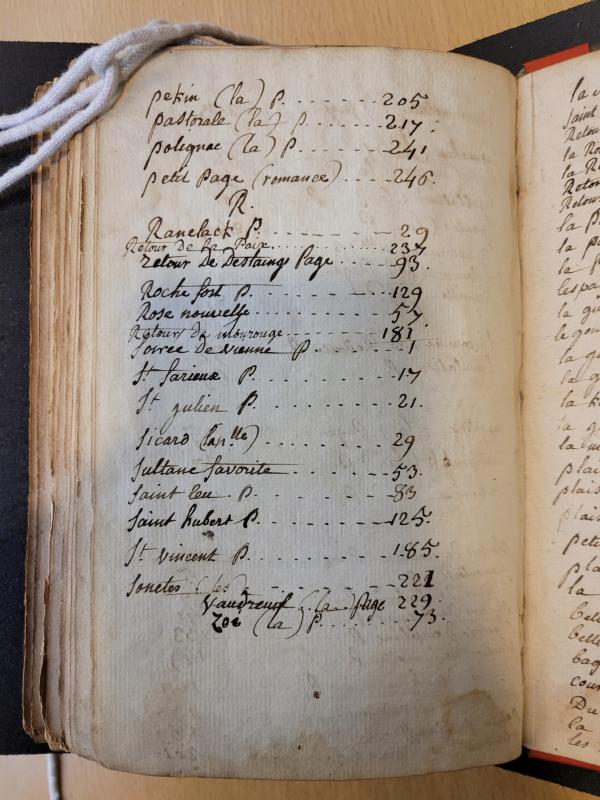 pekin (la) p. ...... 205
pastorale (la) p. .... 217.
polignac (la) p. .... 241
petit page (romance) .... 246.
R.
Ranelack p. ....... 29
Retour de la Paix ........ 237
retour De Destaings page .... 93.
Roche fort p. ...... 129
Rose nouvelle ....... 57
Retours de mourouge ....... 181
Soirée de vienne p ...... 1
St farieux p. ...... 17
St julien p. ...... 21.
Sicard (la nlle) ...... 29
Sultane favorite ...... 53.
Saint leu . p. ...... 83
Saint hubert p. ...... 125.
St vincent p. ...... 185.
Sonetes (les) ...... 221
Vaudreuil (la) page 229.
Zoé (la) p. ...... 73.
la
saint
Retou
la Ro
la R
Retou
Retou
la p
la pa
la
les pa
la gu
le gou
la gu
la g
la
la g
la m
plai
plais
plain
peti
pla
la
belle
belle
bag
cour
Du
la
les